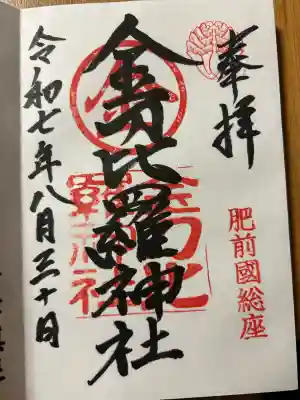 奉拝
肥前國総座
金刀比羅神社
令和七年八月三十日